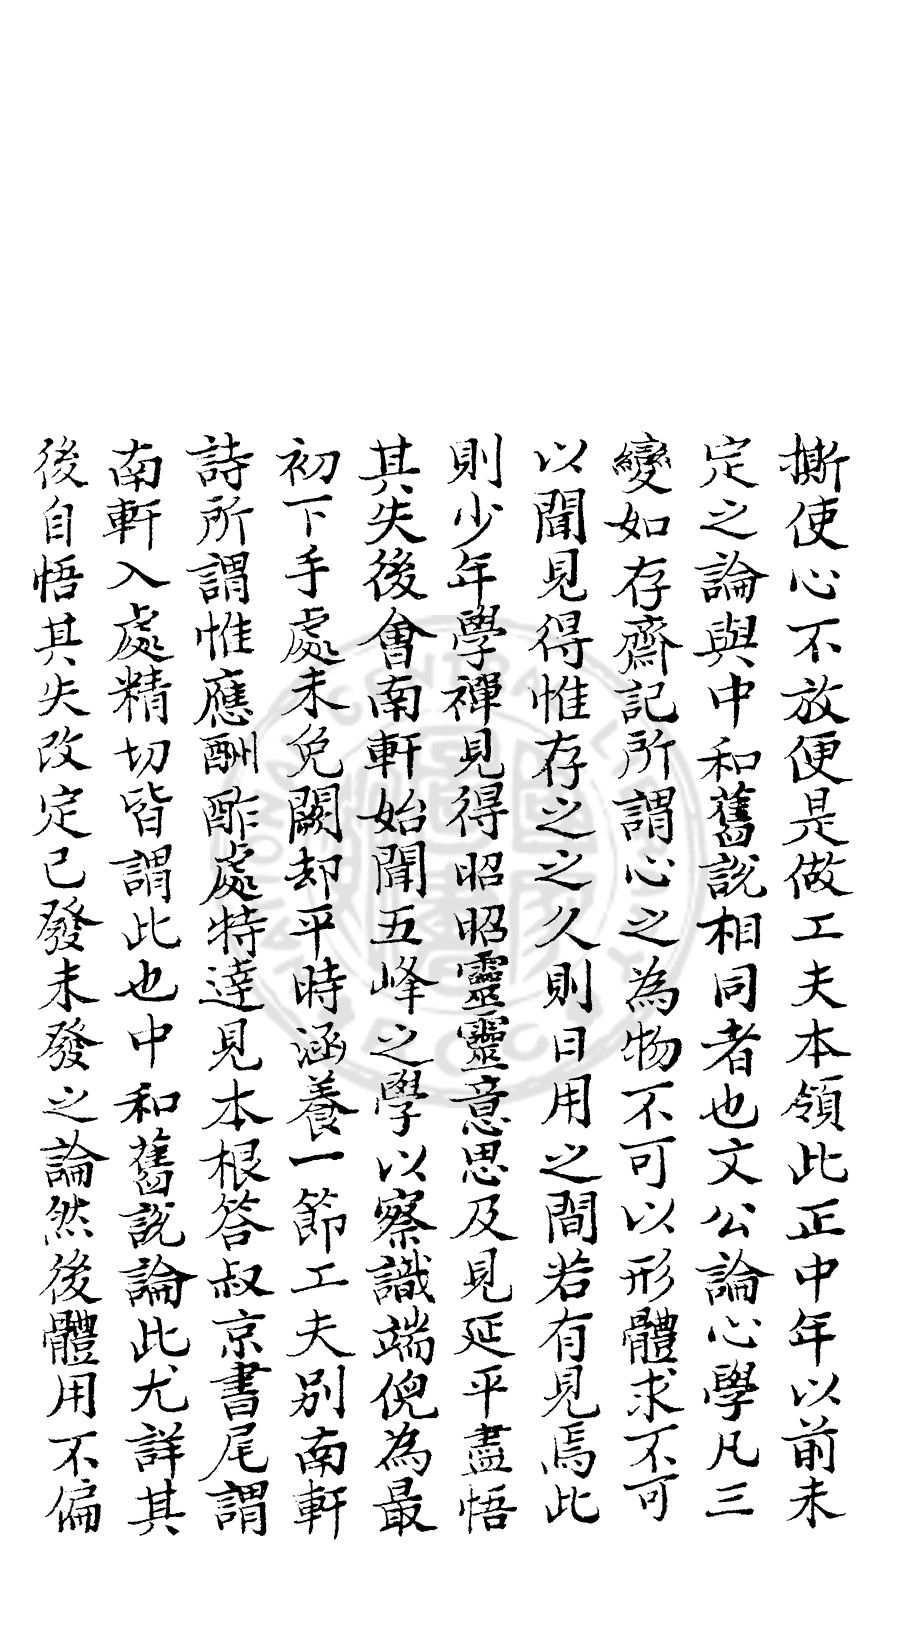 撕使心不放便是做工夫本領此正中年以前未
定之論與中和舊說相同者也文公論心學凡三
變如存齋記所謂心之為物不可以形體求不可
以聞見得惟存之之久則日用之間若有見焉此
則少年學禪見得昭昭靈靈意思及見延平盡悟
其失後會南軒始聞五峰之學以察識端倪為最
初下手處未免闕却平時涵養一節工夫別南軒
詩所謂惟應酬酢處特達見本根答叔京書尾謂
南軒入處精切皆謂此也中和舊說論此尤詳其
後自悟其失改定已發未發之論然後體用不偏